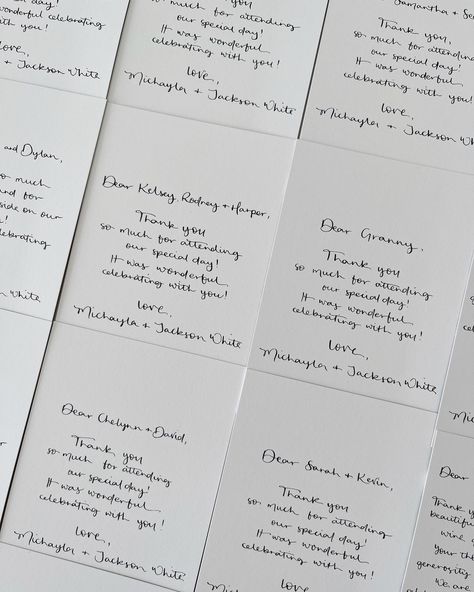 day!
wonderful celebrating
with you!
Love,
Michayla + Jackson White
so much for attending
our special day!
It was wonderful
celebrating with you!
Love,
Michayla + Jackson White
Samantha +
Thank you,
so much for attending
our special day!
It was wonderful
celebrating with you!
Love,
Michayla + Jackson White
and Dylan,
so much
and for
side on our
celebrating
White
Dear Kelsey, Rodney + Harper,
Thank you
so much for attending
our special day!
It was wonderful
celebrating with you!
Love,
Michayla + Jackson White
Dear Granny,
Thank you
so much for attending
our special day!
It was wonderful
celebrating with you!
Love,
Michayla + Jackson White
Dear Chelynn + David,
Thank you
so much for attending
our special day!
It was wonderful
celebrating with you!
Love,
Michayla + Jackson White
Dear Sarah + Kevin,
Thank you
so much for attending
our special day!
It was wonderful
celebrating with you!
Love
Dear
Thank
beautiful
wine
your th
generosity
We are